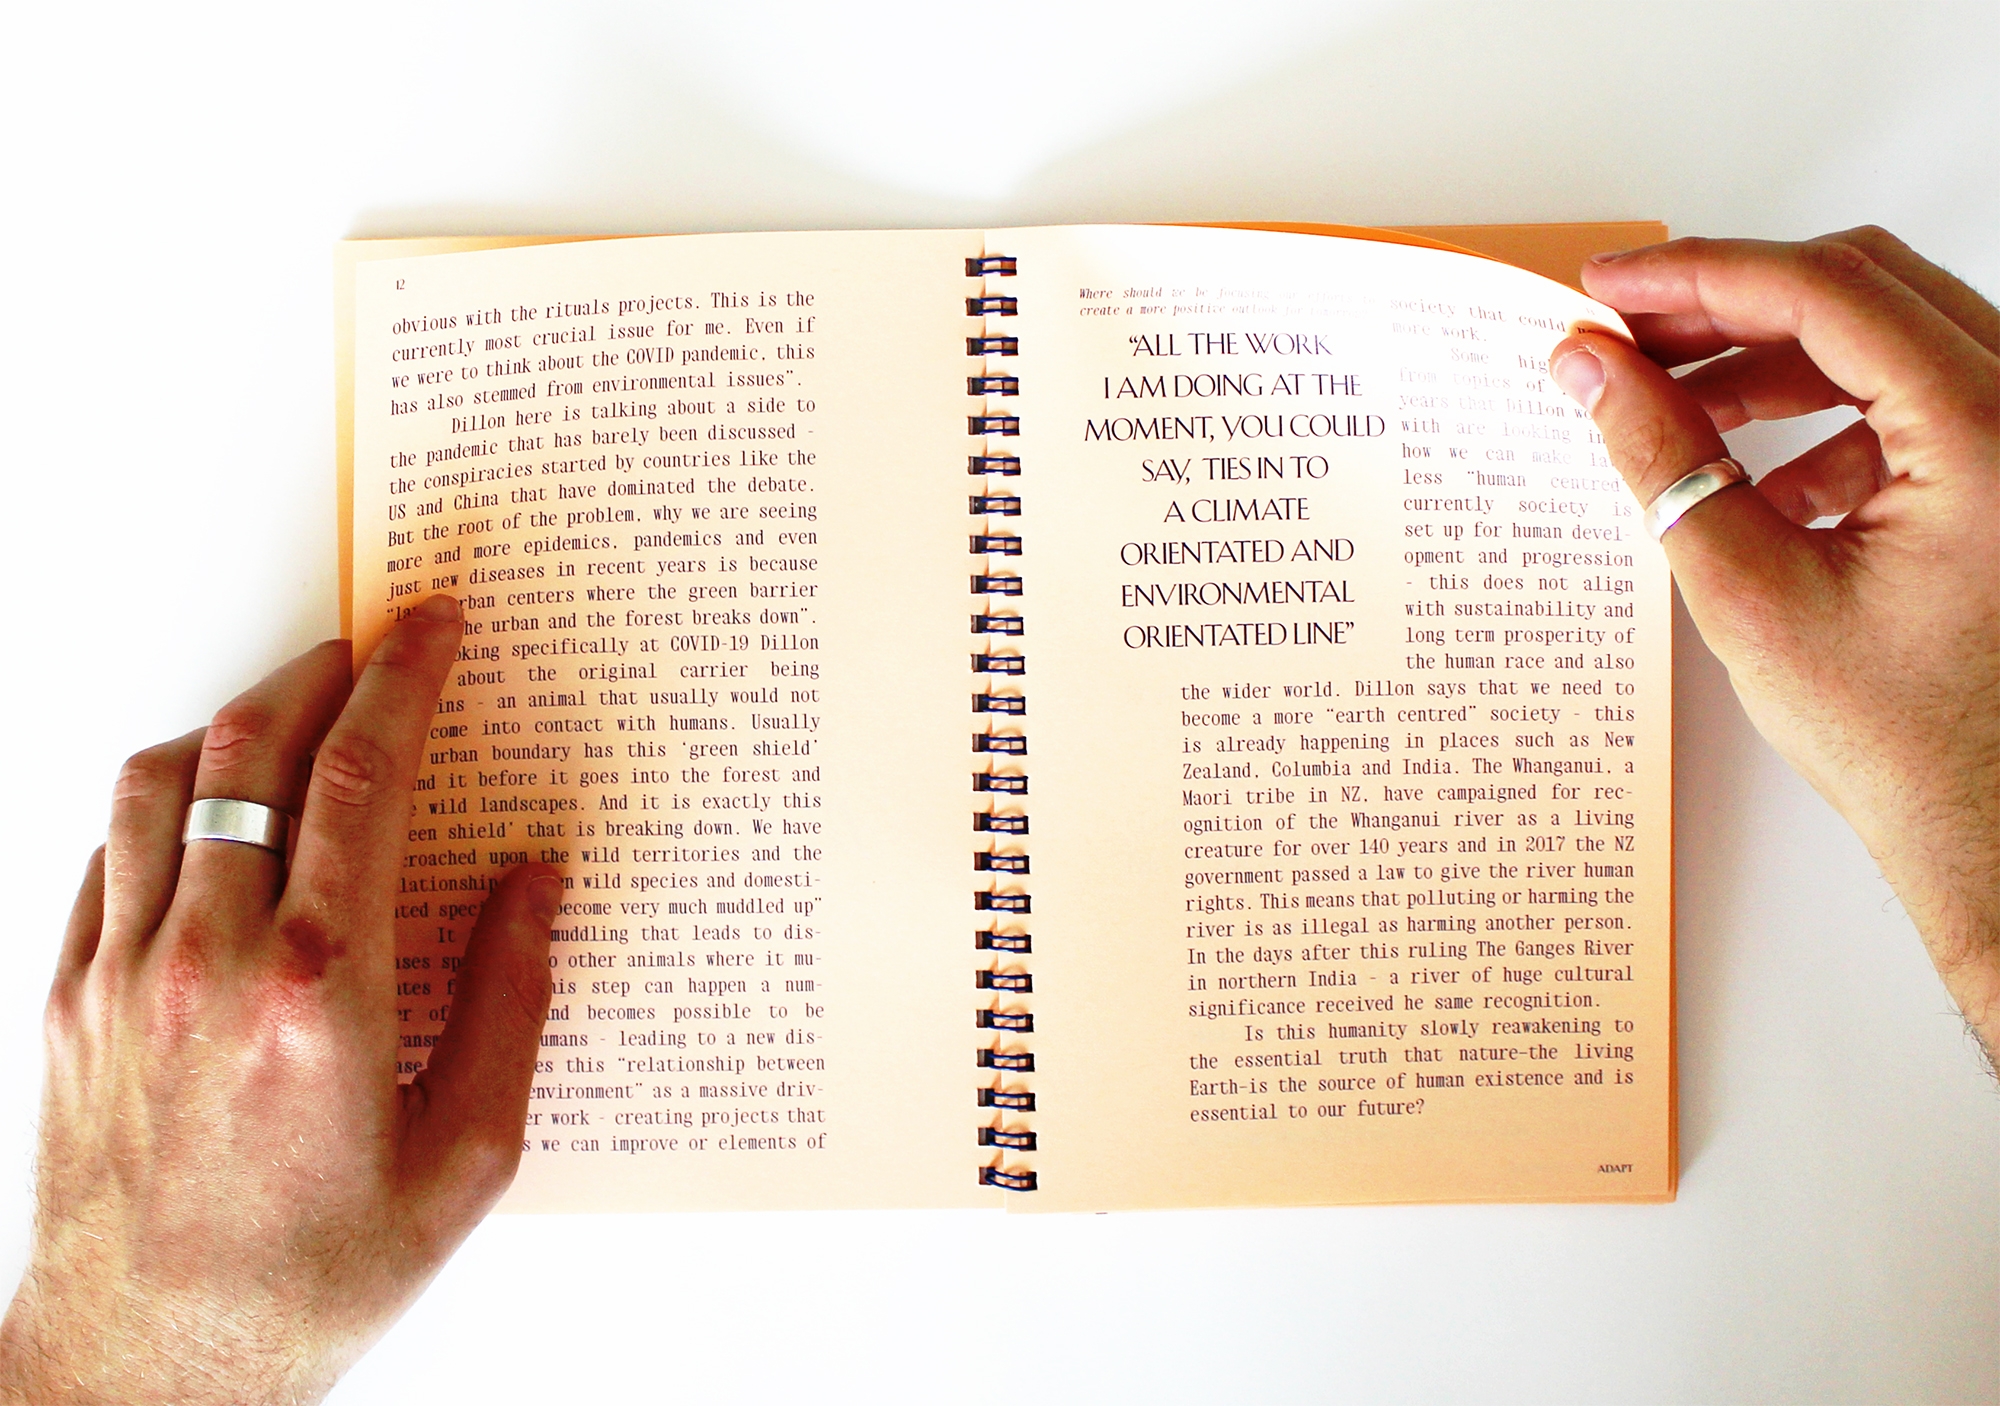 12
obvious with the rituals projects. This is the
currently most crucial issue for me. Even if
we were to think about the COVID pandemic, this
has also stemmed from environmental issues".
Dillon here is talking about a side to
the pandemic that has barely been discussed -
the conspiracies started by countries like the
US and China that have dominated the debate.
But the root of the problem, why we are seeing
more and more epidemics, pandemics and even
just new diseases in recent years is because
centers where the green barrier
urban and the forest breaks down".
specifically at COVID-19 Dillon
about the original carrier being
- an animal that usually would not
come into contact with humans. Usually
urban boundary has this 'green shield'
it before it goes into the forest and
wild landscapes. And it is exactly this
shield' that is breaking down. We have
upon the wild territories and the
wild species and domesti-
become very much muddled up"
It muddling that leads to dis-
other animals where it mu-
step can happen a num-
becomes possible to be
- leading to a new dis-
this "relationship between
environment" as a massive driv-
work - creating projects that
we can improve or elements of
Where should we be focusing our efforts to
create a more positive outlook for
"ALL THE WORK
I AM DOING AT THE
MOMENT, YOU COULD
SAY, TIES IN TO
A CLIMATE
ORIENTATED AND
ENVIRONMENTAL
ORIENTATED LINE"
society that could
more work.
Some
from topics of
years that Dillon
with are looking
how we can make
less "human centred"
currently society is
set up for human devel-
opment and progression
- this does not align
with sustainability and
long term prosperity of
the human race and also
the wider world. Dillon says that we need to
become a more "earth centred" society - this
is already happening in places such as New
Zealand, Columbia and India. The Whanganui, a
Maori tribe in NZ, have campaigned for rec-
ognition of the Whanganui river as a living
creature for over 140 years and in 2017 the NZ
government passed a law to give the river human
rights. This means that polluting or harming the
river is as illegal as harming another person.
In the days after this ruling The Ganges River
in northern India - a river of huge cultural
significance received he same recognition.
Is this humanity slowly reawakening to
the essential truth that nature-the living
Earth-is the source of human existence and is
essential to our future?
ADAPT